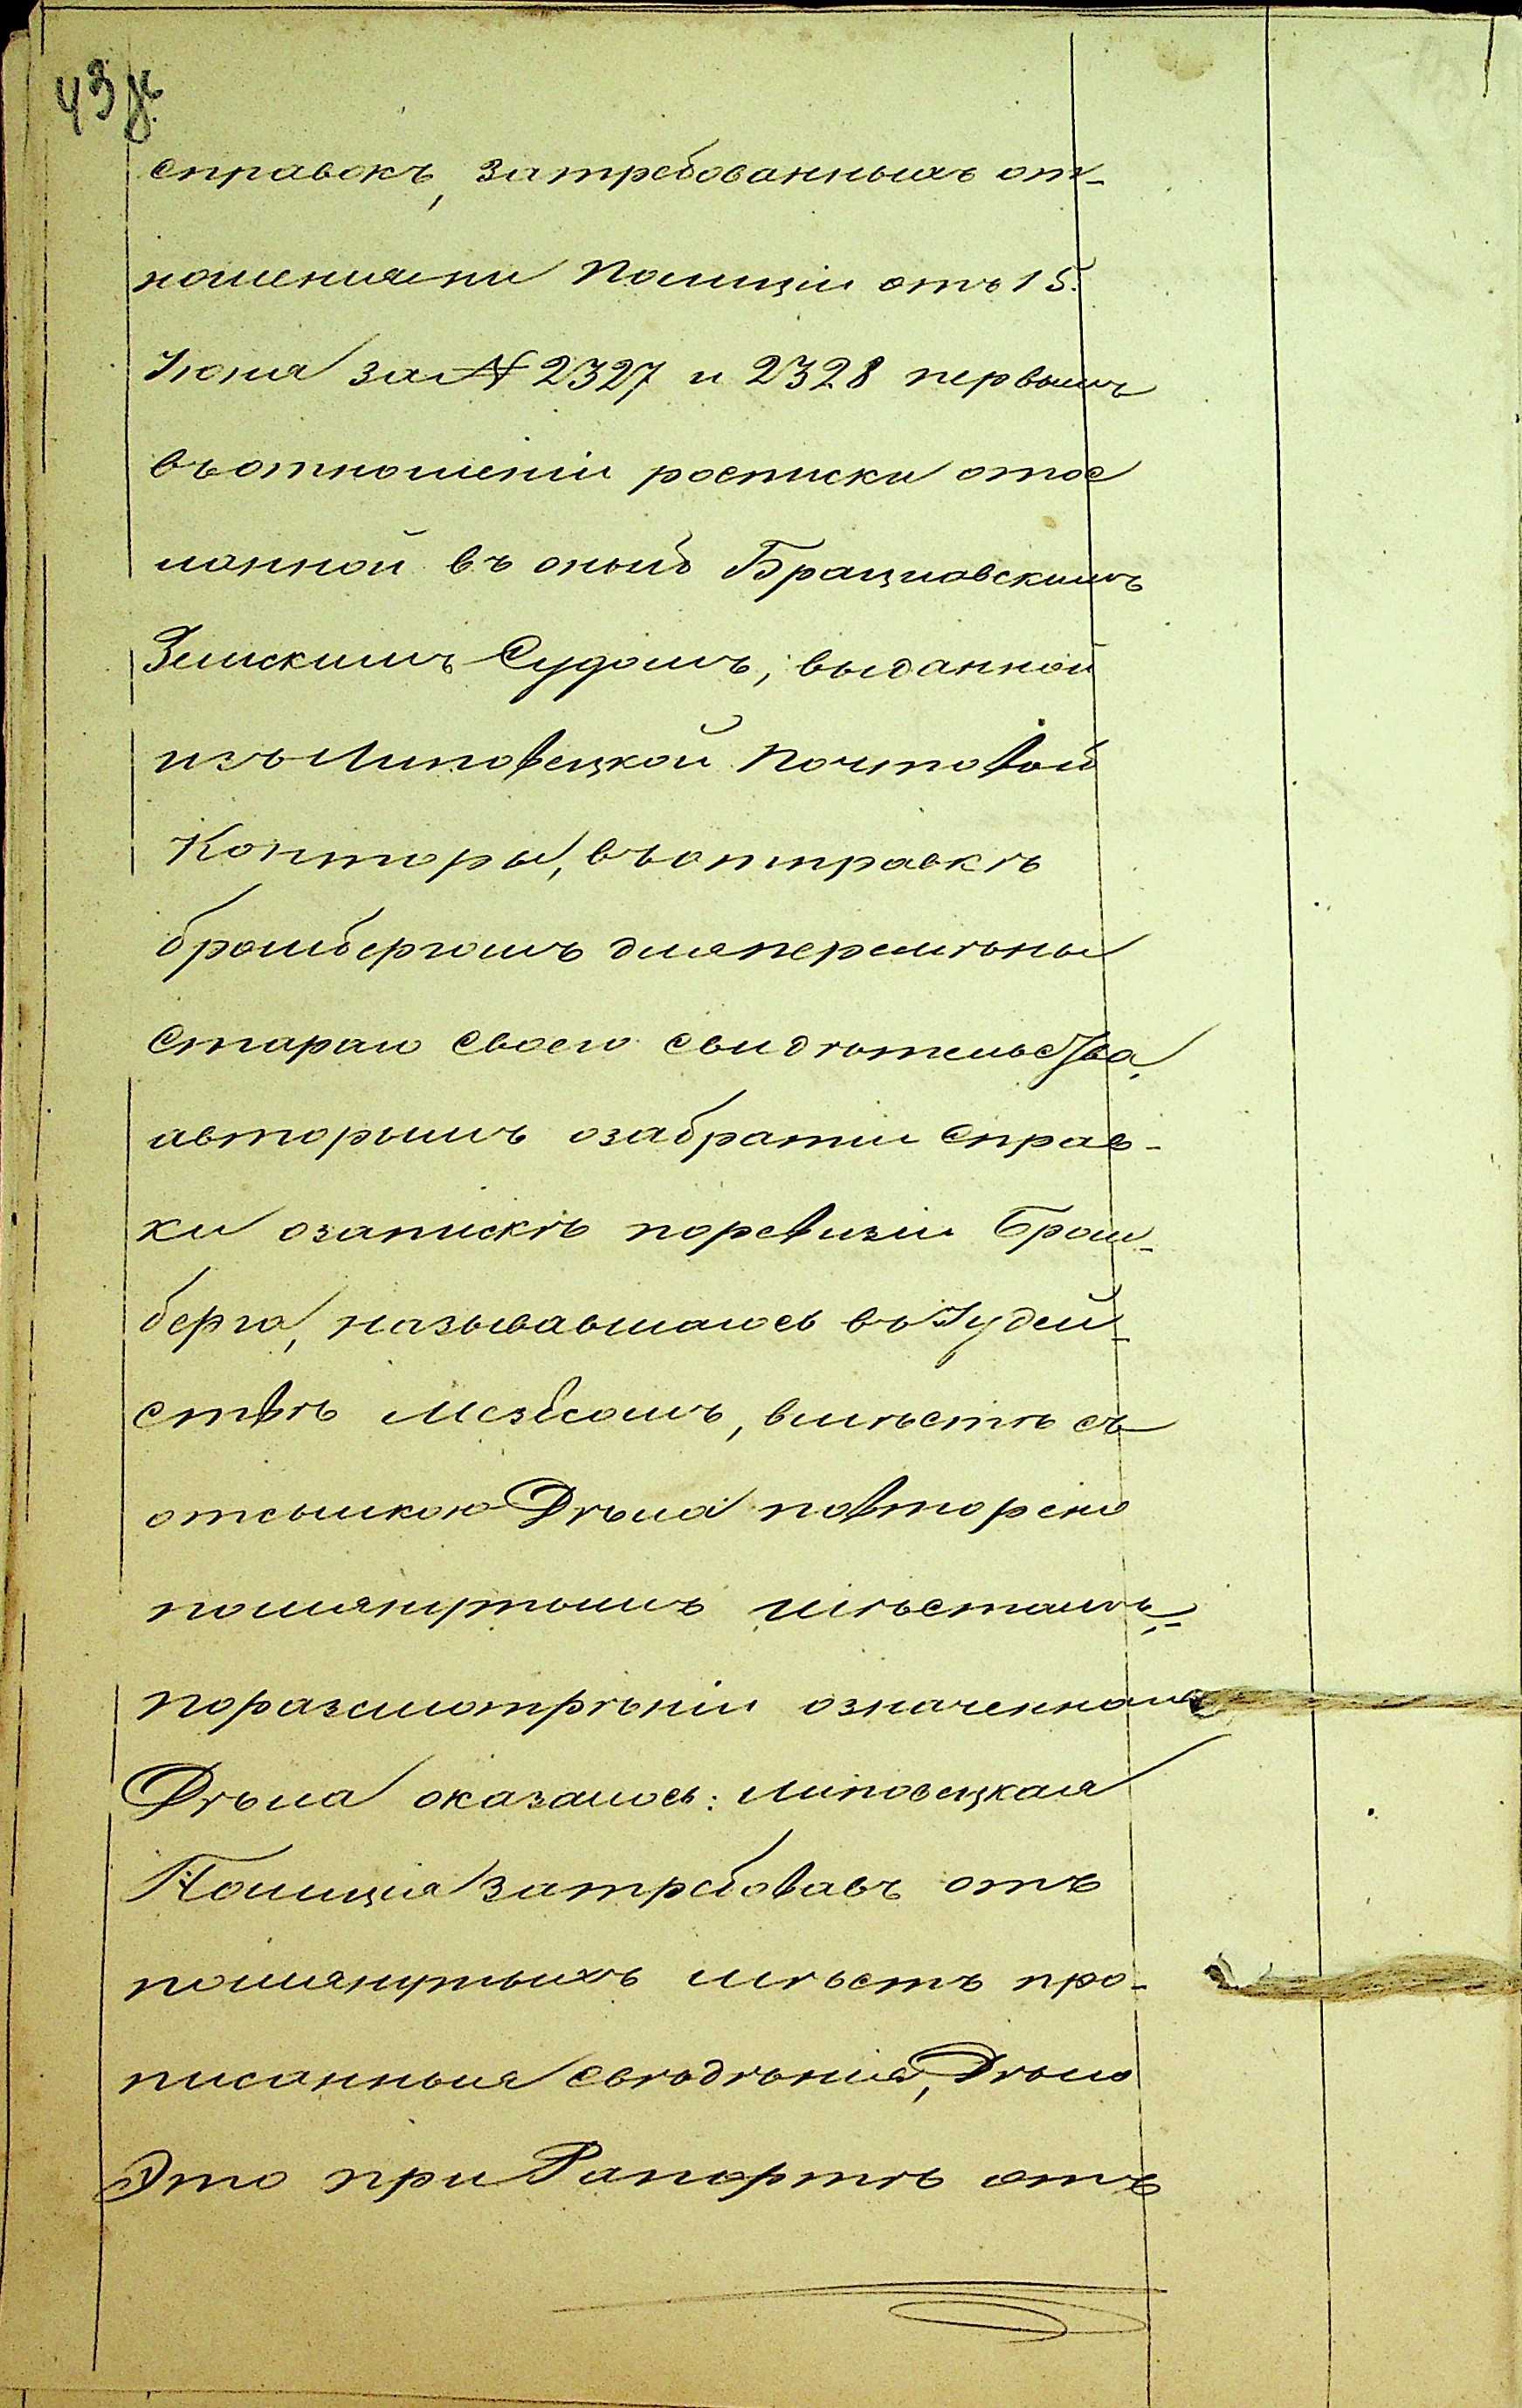 43 
справокъ, затребованныхъ от-
ношеніями Полиціи отъ 15.
Іюня за № 2327 и 2328 первымъ
въ отношеніи росписки отос
ланной въ оный Брацлавскимъ
Земскимъ Судомъ, выданной
изъ Липовецкой Почтовой
Конторы, въ отправкѣ
бромбергомъ для перемѣны
стараго своего свидѣтельства,
а вторымъ о забратіи справ-
ки о запискѣ по ревизіи Бром-
берга, называвшагось въ Іудей-
ствѣ Мезбсомъ, вмѣстѣ съ
отсылкою Дѣла повторено
помянутымъ мѣстамъ.-
по разсмотрѣніи означеннаго
Дѣла оказалось: Липовецкая
Полиція затребовавъ отъ
помянутыхъ мѣстъ про-
писанныя свѣдѣнія, Дѣло
Это при Рапортѣ отъ